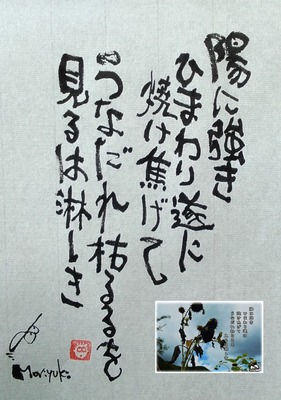 陽に強き
ひまわり遂に
焼け焦げて
うなだれ枯るるを
見るは淋しき
Moriyuki